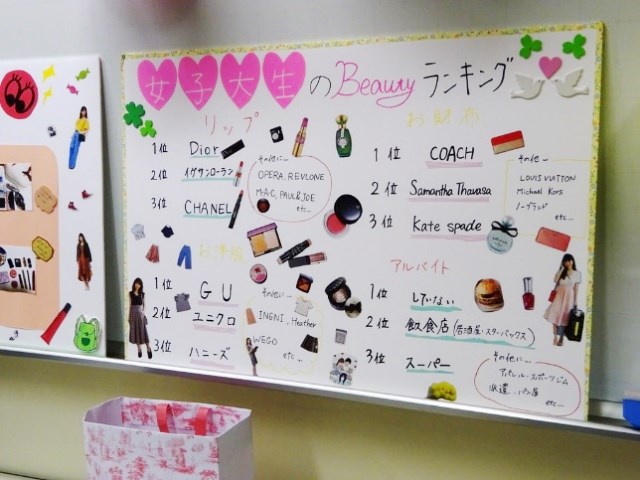 女子大生のBeautyランキング
リップ
1位 Dior
2位 イヴサンローラン
3位 CHANEL
その他…
OPERA, REVLONE
M·A·C, PAUL&JOE
etc…
お財布
1位 COACH
2位 Samantha Thavasa
3位 Kate spade
その他…
LOUIS VUITTON
Michael Kors
ノーブランド
etc…
お洋服
1位 GU
2位 ユニクロ
3位 ハニーズ
その他…
INGNI, Heather
WEGO
etc…
アルバイト
1位 していない
2位 飲食店(居酒屋・スターバックス)
3位 スーパー
その他…
アパレル・スポーツジム
派遣、パン屋
etc…